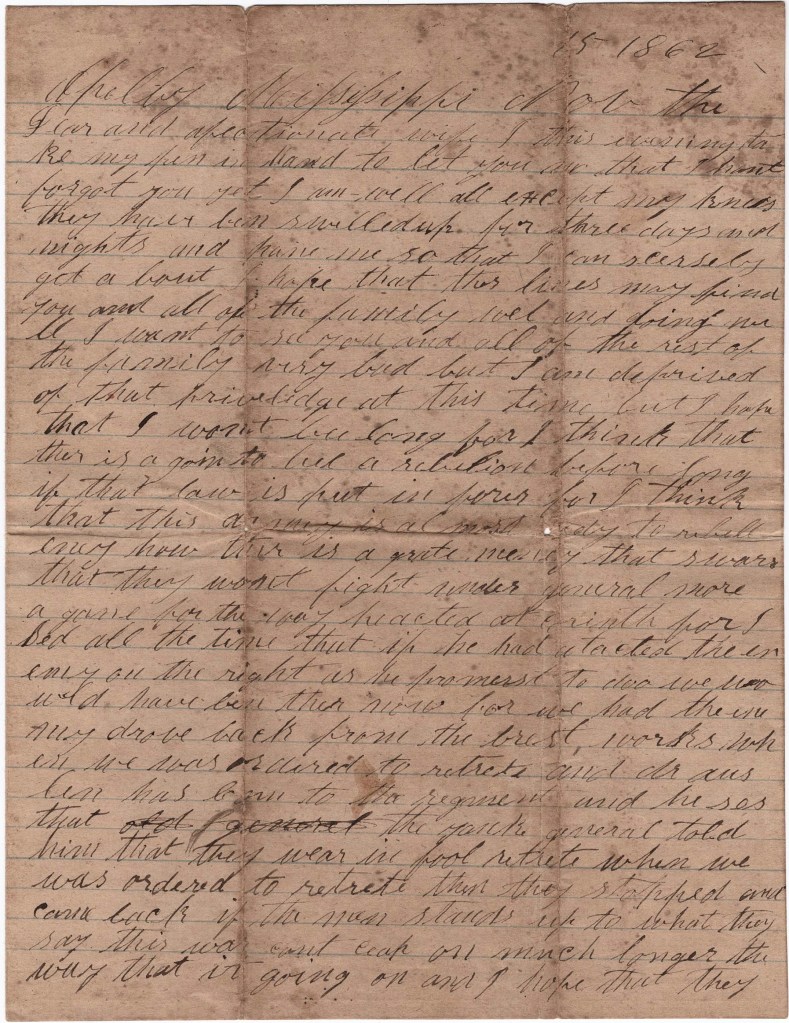 15 1862
Mississippi Nov the
Dear and afectionate wife I this evening ta
ke my pen in hand to let you no that I hant
forgot you yet I am well all except my knees
they have ben swilled up for three days and
nights and pane me so that I can scersely
get a bout I hope that ths lines may find
you and all of the family wel and doing we
ll I want to se you and all of the rest of
the family very bad but I am deprived
of that priviledge at this time but I hope
that I wont be long for I think that
ther is a goin to bee a rebelion before long
if that law is put in force for I think
that this army is al most redy to rebell
eny how ther is a grate meny that swars
that they wont fight under general more
a gane for the way he acted at corinth for I
sed all the time that if he had atacted the en
emy on the right as he promerst to doo we woo
uld have ben ther now for we had the ene
my drove back from the brest works wh
en we was ordered to retrete and dr aus
len has ben to the regment and he ses
that old general the yanke general told
him that they wear in fool retrete when we
was ordered to retrete then they stopped and
came back if the men stands up to what they
say this war cant ceap on much longer the
way that it going on and I hope that they